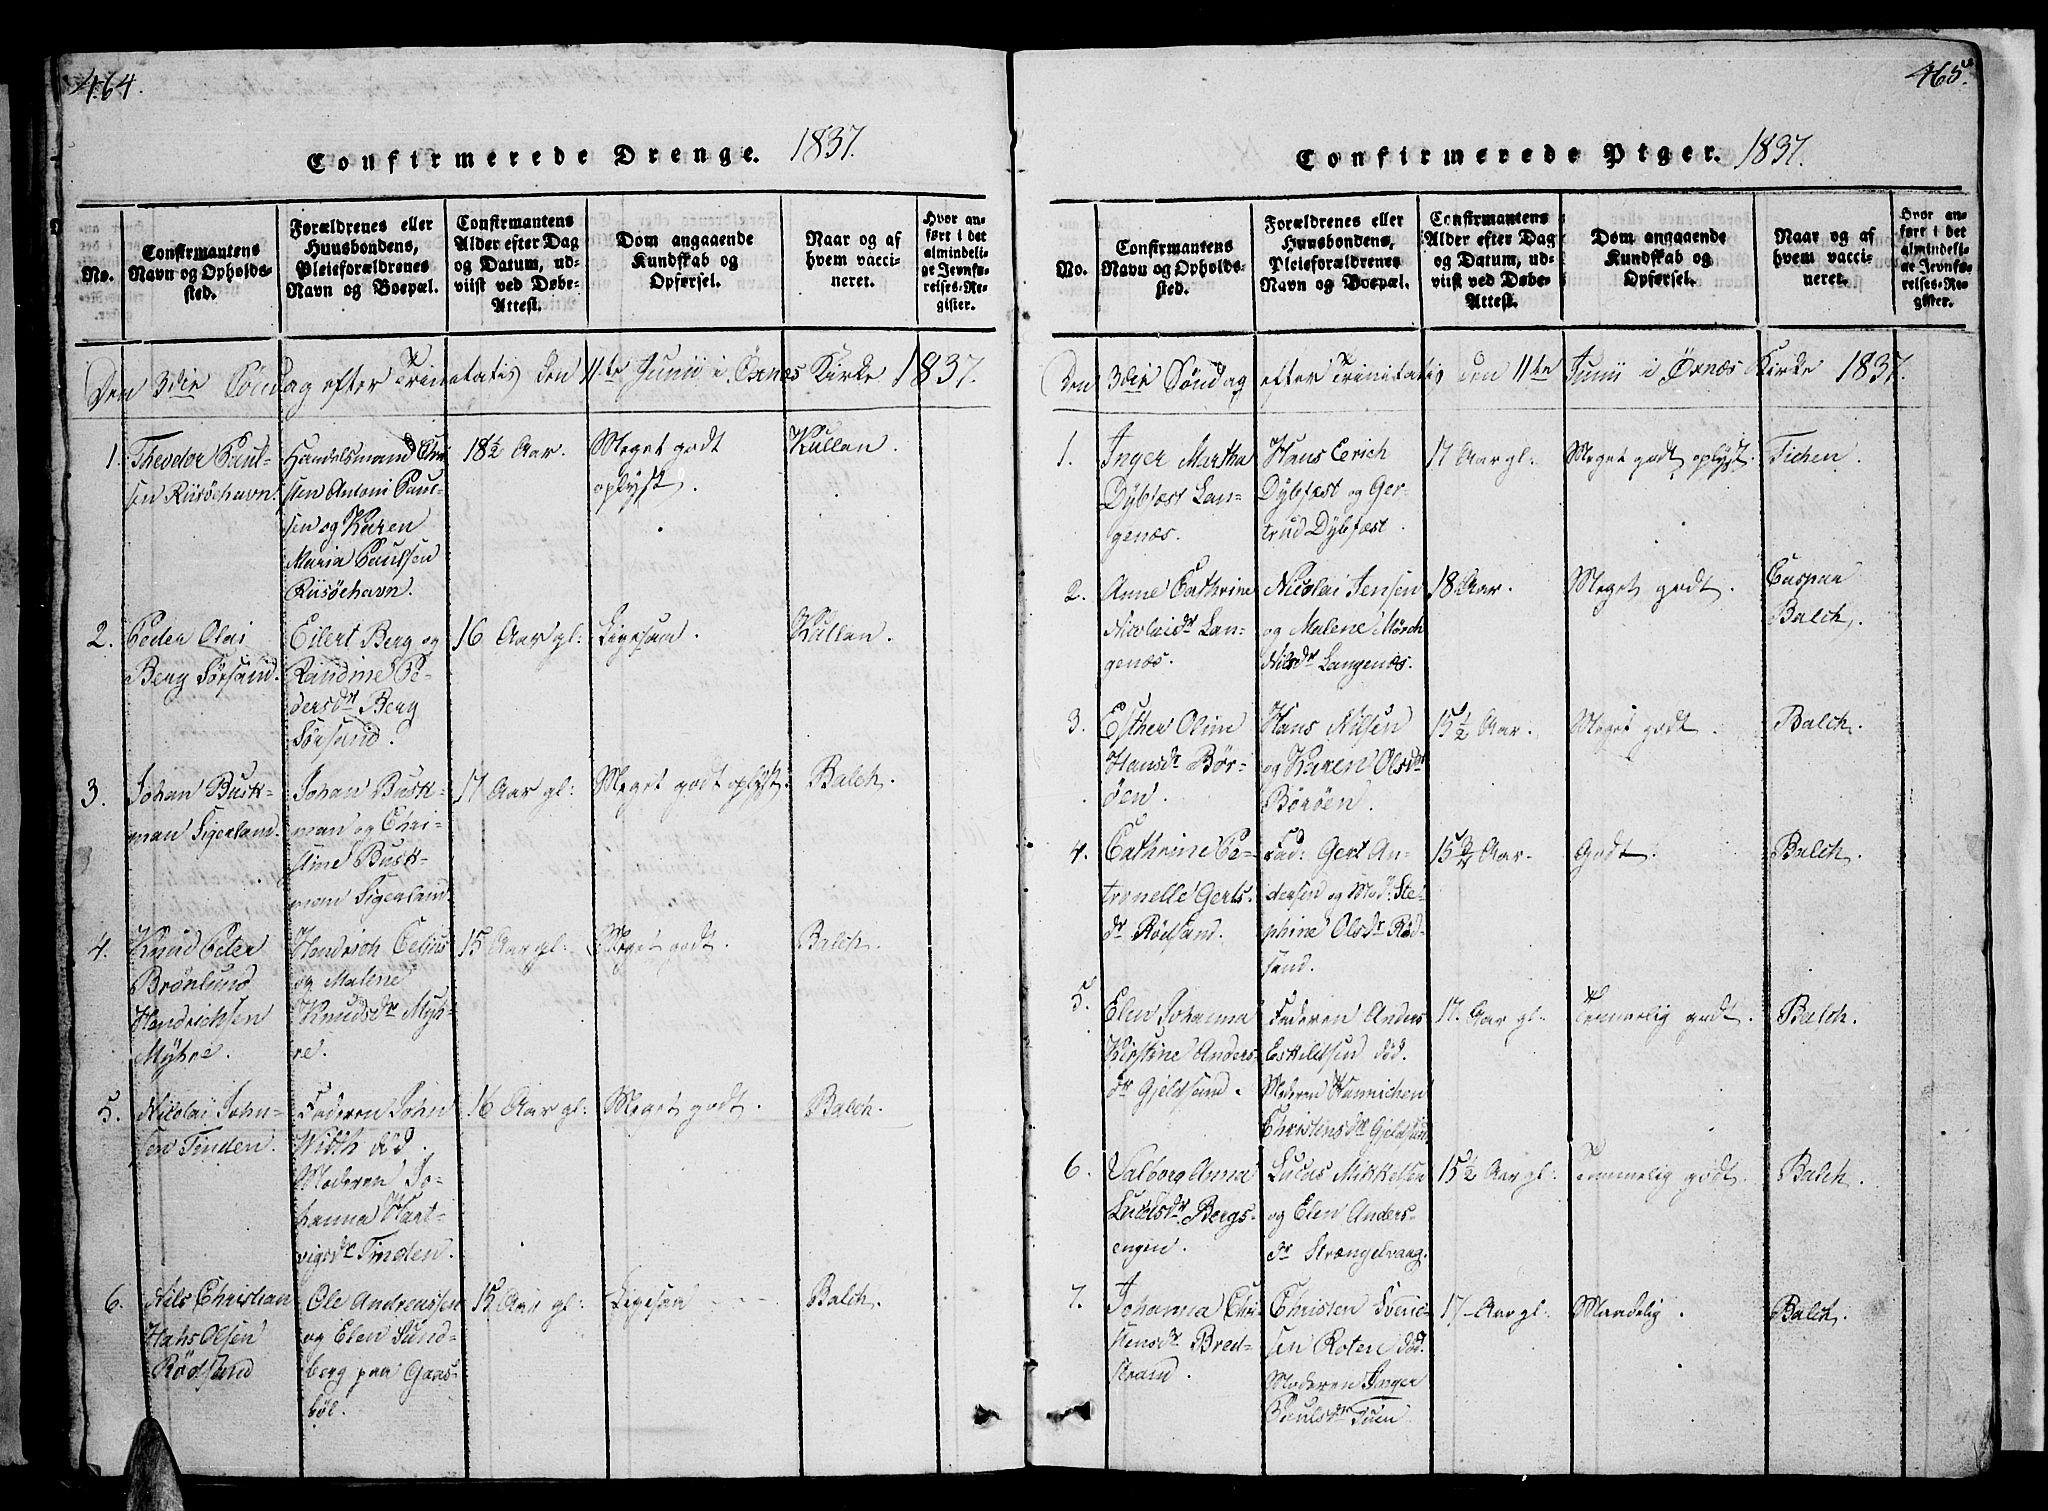 464.
Confirmerede Drenge. 1837.
No.
Confirmantens
Navn og Opholds-
sted.
Forældrenes eller
Huusbondens,
Pleieforældrenes
Navn og Boepæl.
Confirmantens
Alder efter Dag
og Datum, ud-
viist ved Døbe-
Attest.
Dom angaaende
Kundskab og
Opførsel.
Naar og af
hvem vacci-
neret.
Hvor an-
ført i det
almindeli-
ge Jevnfø-
relses-Re-
gister.
Den 3die Söndag efter Trinitatis den 11te Junii i Öxnæs Kirke 1837.
1.
Theodor Paul-
sen Risöehavn.
Handelsmand Chri-
sten Antoni Paul-
sen og Karen
Maria Paulsen
Risöehavn.
18½ Aar.
Meget godt
oplyst.
Kullan.
2.
Peder Olai
Berg Sörsand.
Eilert Berg og
Randine Pe-
dersdr Berg
Sörsand.
16 Aar gl:
Ligesaa.
Kullan.
3.
Johan Busk-
man Sigerland.
Johan Busk-
man og
Ane Busk-
man Sigerland.
17 Aar gl:
Meget godt oplyst.
Balch.
4.
Knud Peter
Brönlund
Hendrichsen
Myhre.
Hendrich Celius
og Malene
Knudsdr Myh-
re.
15 Aar gl:
Meget godt.
Balch.
5.
Nicolai John-
sen Tinden.
Faderen John
Witth död.
Moderen Jo-
hanna Hart-
vigsdr Tinden.
16 Aar gl:
Meget godt.
Balch.
6.
Nils Christian
Hans Olsen
Rödsand
Ole Andreassen
og Elen Lund-
berg paa Gaas-
böl.
15 Aar gl:
Ligesaa
Balch.
465.
Confirmerede Piger. 1837.
No.
Confirmantens
Navn og Opholds-
sted.
Forældrenes eller
Huusbondens,
Pleieforældrenes
Navn og Boepæl.
Confirmantens
Alder efter Dag
og Datum, ud-
viist ved Døbe-
Attest.
Dom angaaende
Kundskab og
Opførsel.
Naar og af
hvem vacci-
neret.
Hvor an-
ført i det
almindeli-
ge Jevnfø-
relses-Re-
gister.
Den 3die Söndag efter Trinitatis den 11te Junii i Öxnæs Kirke 1837.
1.
Inger Martha
Dybfæst Lan-
genæs.
Hans Erich
Dybfæst og Ger-
trud Dybfæst.
17 Aar gl:
Meget godt oplyst.
Tichen.
2.
Anne Cathrine
Nicolaidr Lan-
genæs.
Nicolai Jensen
og Malene Mörch
Nilsdr Langenæs.
18 Aar.
Meget godt.
Balch.
3.
Esther Oline
Hansdr Bör-
öen.
Hans Nilsen
og Karen Olsdr
Böröen.
15½ Aar.
Meget godt.
Balch.
4.
Cathrine Pe-
tronelle Gerts-
dr Rödsand.
Fad: Gert An-
dersen og Mod: Ste-
phine Olsdr Röd-
sand.
15¾ Aar.
Godt.
Balch.
5.
Elen Johanna
Kirstine Anders-
dr Gjeldsund.
Faderen Anders
Eskildsen död.
Moderen Hannichen
Christensdr Gjeldsun
17. Aar gl:
Temmelig godt.
Balch.
6.
Valborg Anna
Lucasdr Bergs-
engen.
Lucas Mikkelsen
og Elen Anders-
dr Strængelvaag.
15½ Aar gl:
Temmelig godt.
Balch.
7.
Johanna Chri-
stensdr Bred-
strand.
Christen
sen Roten död.
Moderen Inger
Paulsdr Tuen.
17 Aar gl:
Maadelig.
Balch.